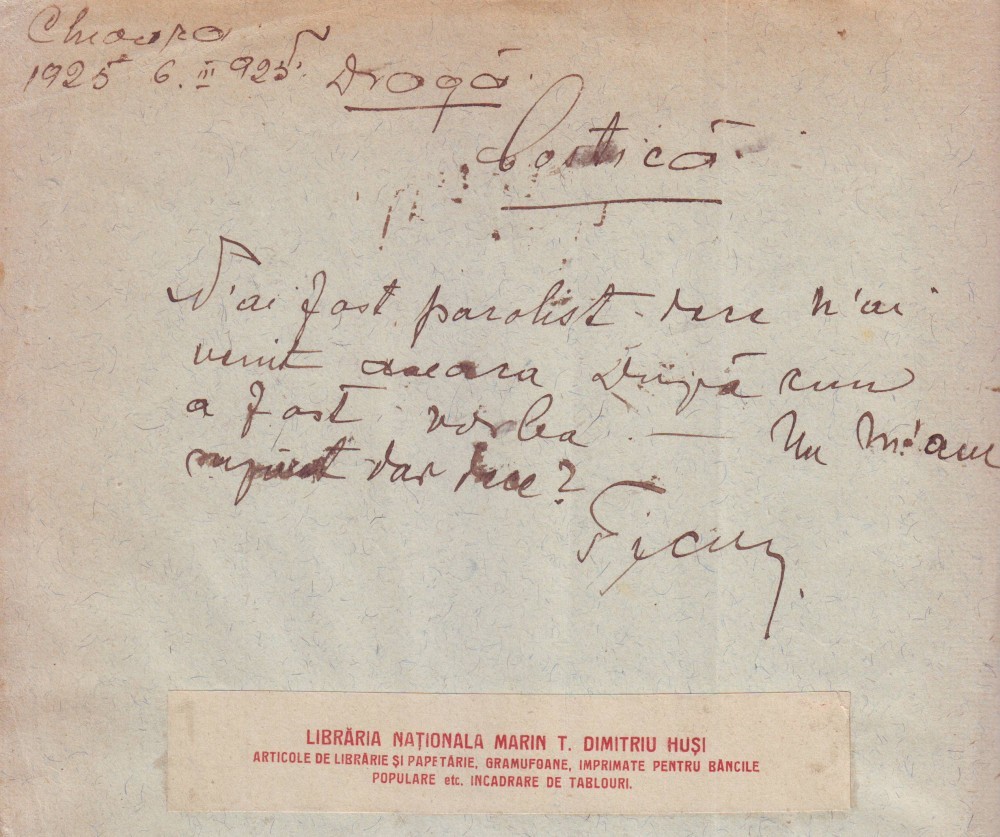 1925 6. III 925.
Dragă
Costică
N'ai fost parolist – dece n'ai
venit aseara După cum
a fost vorba. — Nu m'am
supărat dar dece?
LIBRĂRIA NAȚIONALA MARIN T. DIMITRIU HUȘI
ARTICOLE DE LIBRĂRIE ȘI PAPETĂRIE, GRAMUFOANE, IMPRIMATE PENTRU BĂNCILE
POPULARE etc. INCADRARE DE TABLOURI.